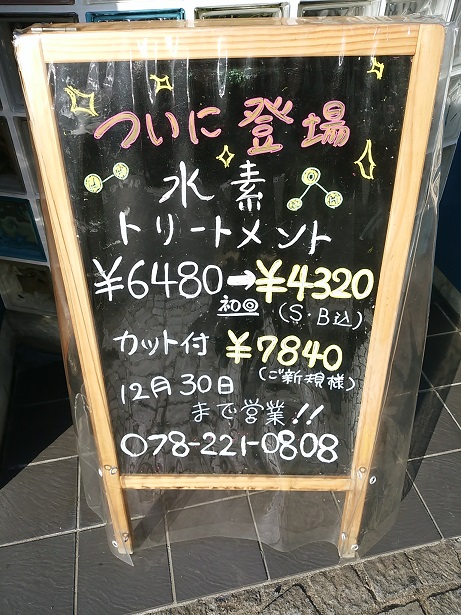 ついに登場
水素
トリートメント
¥6480→¥4320
初回 (S・B込)
カット付 ¥7840
(ご新規様)
12月30日
まで営業!!
078-221-0808